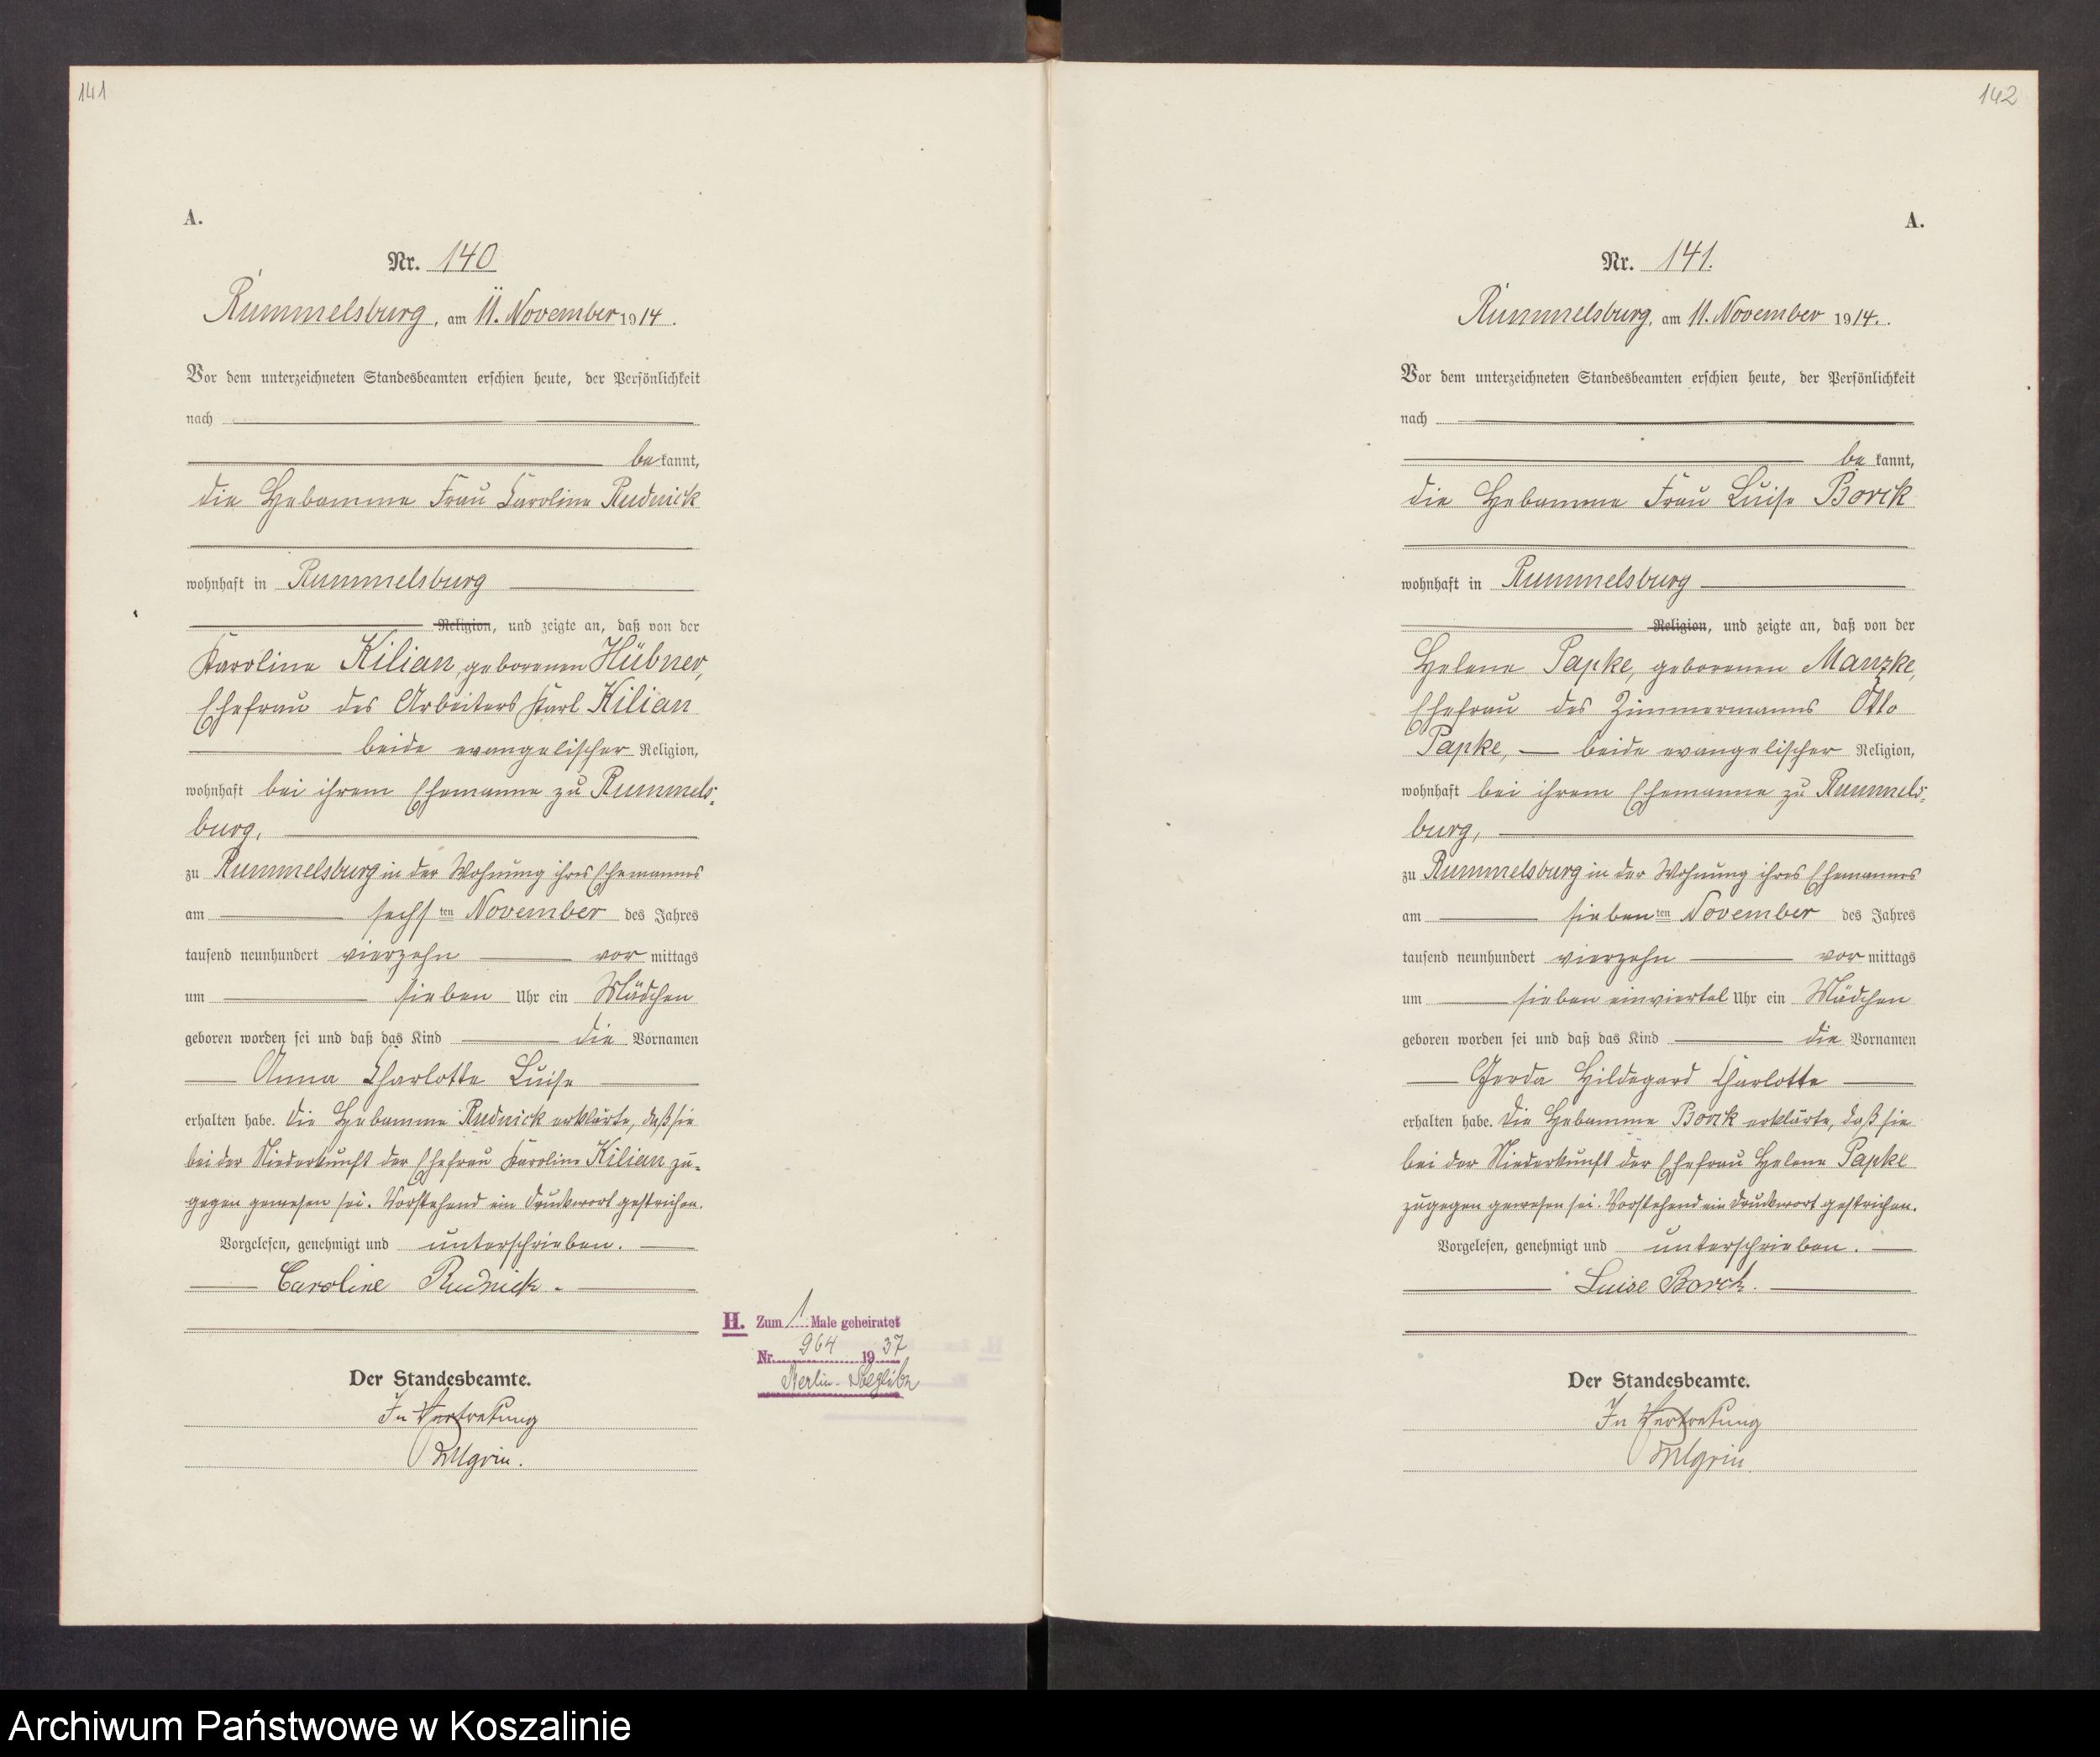 141
A.
Nr. 140
Rummelsburg, am 11. November 1914.
Vor dem unterzeichneten Standesbeamten erschien heute, der Persönlichkeit
nach
bekannt,
die Hebamme Frau Caroline Rudnick
wohnhaft in Rummelsburg
Religion, und zeigte an, daß von der
Karoline Kilian, geborenen Hübner,
Ehefrau des Arbeiters Karl Kilian
beide evangelischer Religion,
wohnhaft bei ihrem Ehemanne zu Rummels-
burg,
zu Rummelsburg in der Wohnung ihres Ehemannes
am sechsten November des Jahres
tausend neunhundert vierzehn vormittags
um sieben Uhr ein Mädchen
geboren worden sei und daß das Kind die Vornamen
Anna Charlotte Luise
erhalten habe. Die Hebamme Rudnick erklärte, daß sie
bei der Niederkunft der Ehefrau Karoline Kilian zu-
gegen gewesen sei. Vorstehend ein Druckwort gestrichen.
Vorgelesen, genehmigt und unterschrieben.
Caroline Rudnick.
Der Standesbeamte.
In Vertretung
H. Zum 1 Male geheiratet
Nr. 964 1937
Berlin-Steglitz
142
A.
Nr. 141.
Rummelsburg, am 11. November 1914.
Vor dem unterzeichneten Standesbeamten erschien heute, der Persönlichkeit
nach
bekannt,
die Hebamme Frau Luise Borck
wohnhaft in Rummelsburg
Religion, und zeigte an, daß von der
Helene Papke, geborenen Manzke,
Ehefrau des Zimmermanns Otto
Papke, beide evangelischer Religion,
wohnhaft bei ihrem Ehemanne zu Rummels-
burg,
zu Rummelsburg in der Wohnung ihres Ehemannes
am siebenten November des Jahres
tausend neunhundert vierzehn vormittags
um sieben einviertel Uhr ein Mädchen
geboren worden sei und daß das Kind die Vornamen
Gerda Hildegard Charlotte
erhalten habe. Die Hebamme Borck erklärte, daß sie
bei der Niederkunft der Ehefrau Helene Papke
zugegen gewesen sei. Vorstehend ein Druckwort gestrichen.
Vorgelesen, genehmigt und unterschrieben.
Luise Borck.
Der Standesbeamte.
In Vertretung
Archiwum Państwowe w Koszalinie